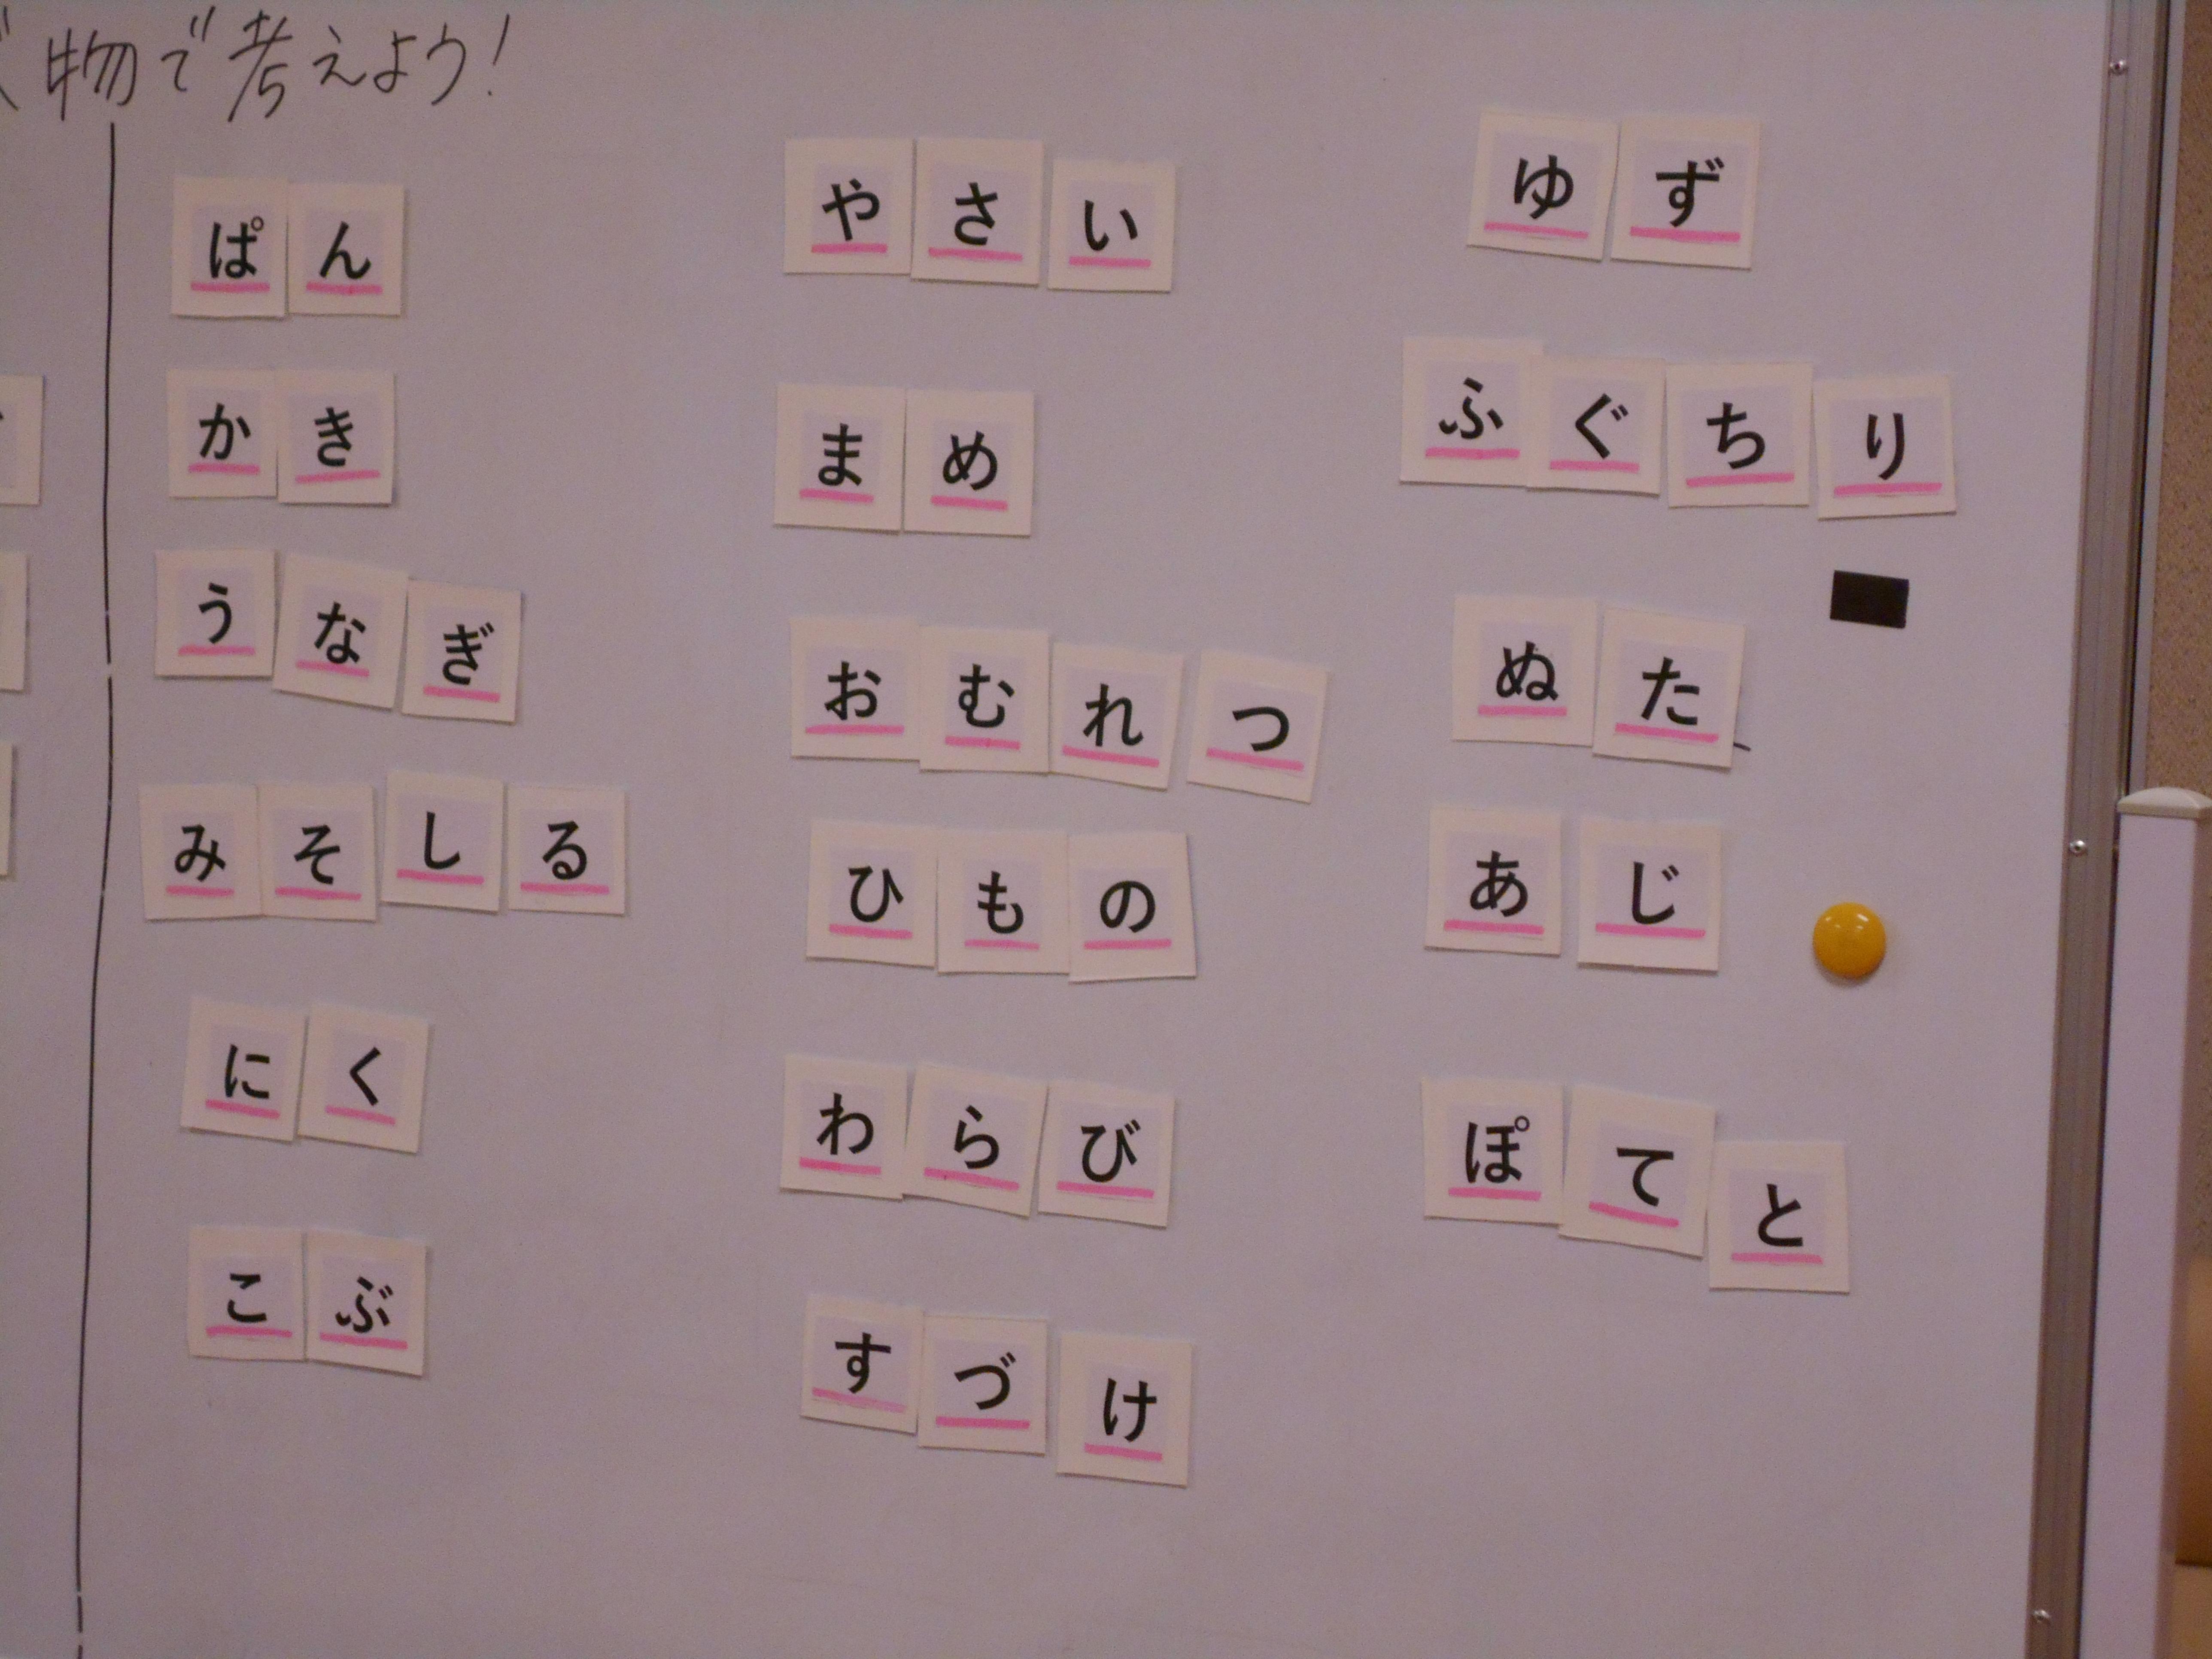 物で考えよう!
ぱん
かき
うなぎ
みそしる
にく
こぶ
やさい
まめ
おむれつ
ひもの
わらび
すづけ
ゆず
ふぐちり
ぬた
あじ
ぽてと